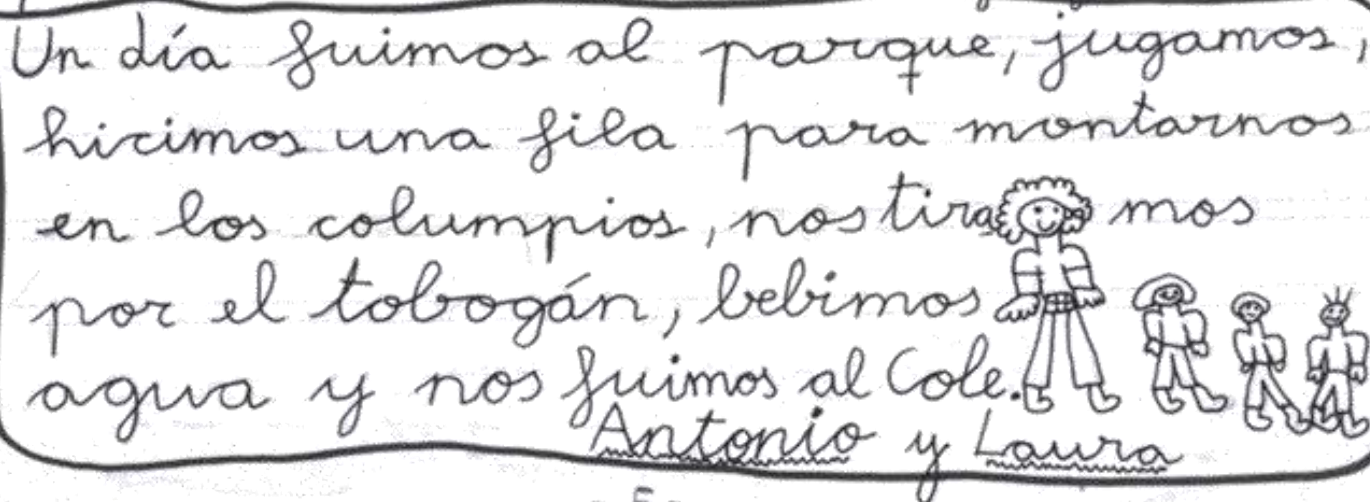 Un día fuimos al parque, jugamos,
hicimos una fila para montarnos
en los columpios, nos tiramos
por el tobogán, bebimos
agua y nos fuimos al Cole.
Antonio y Laura
- 5 -